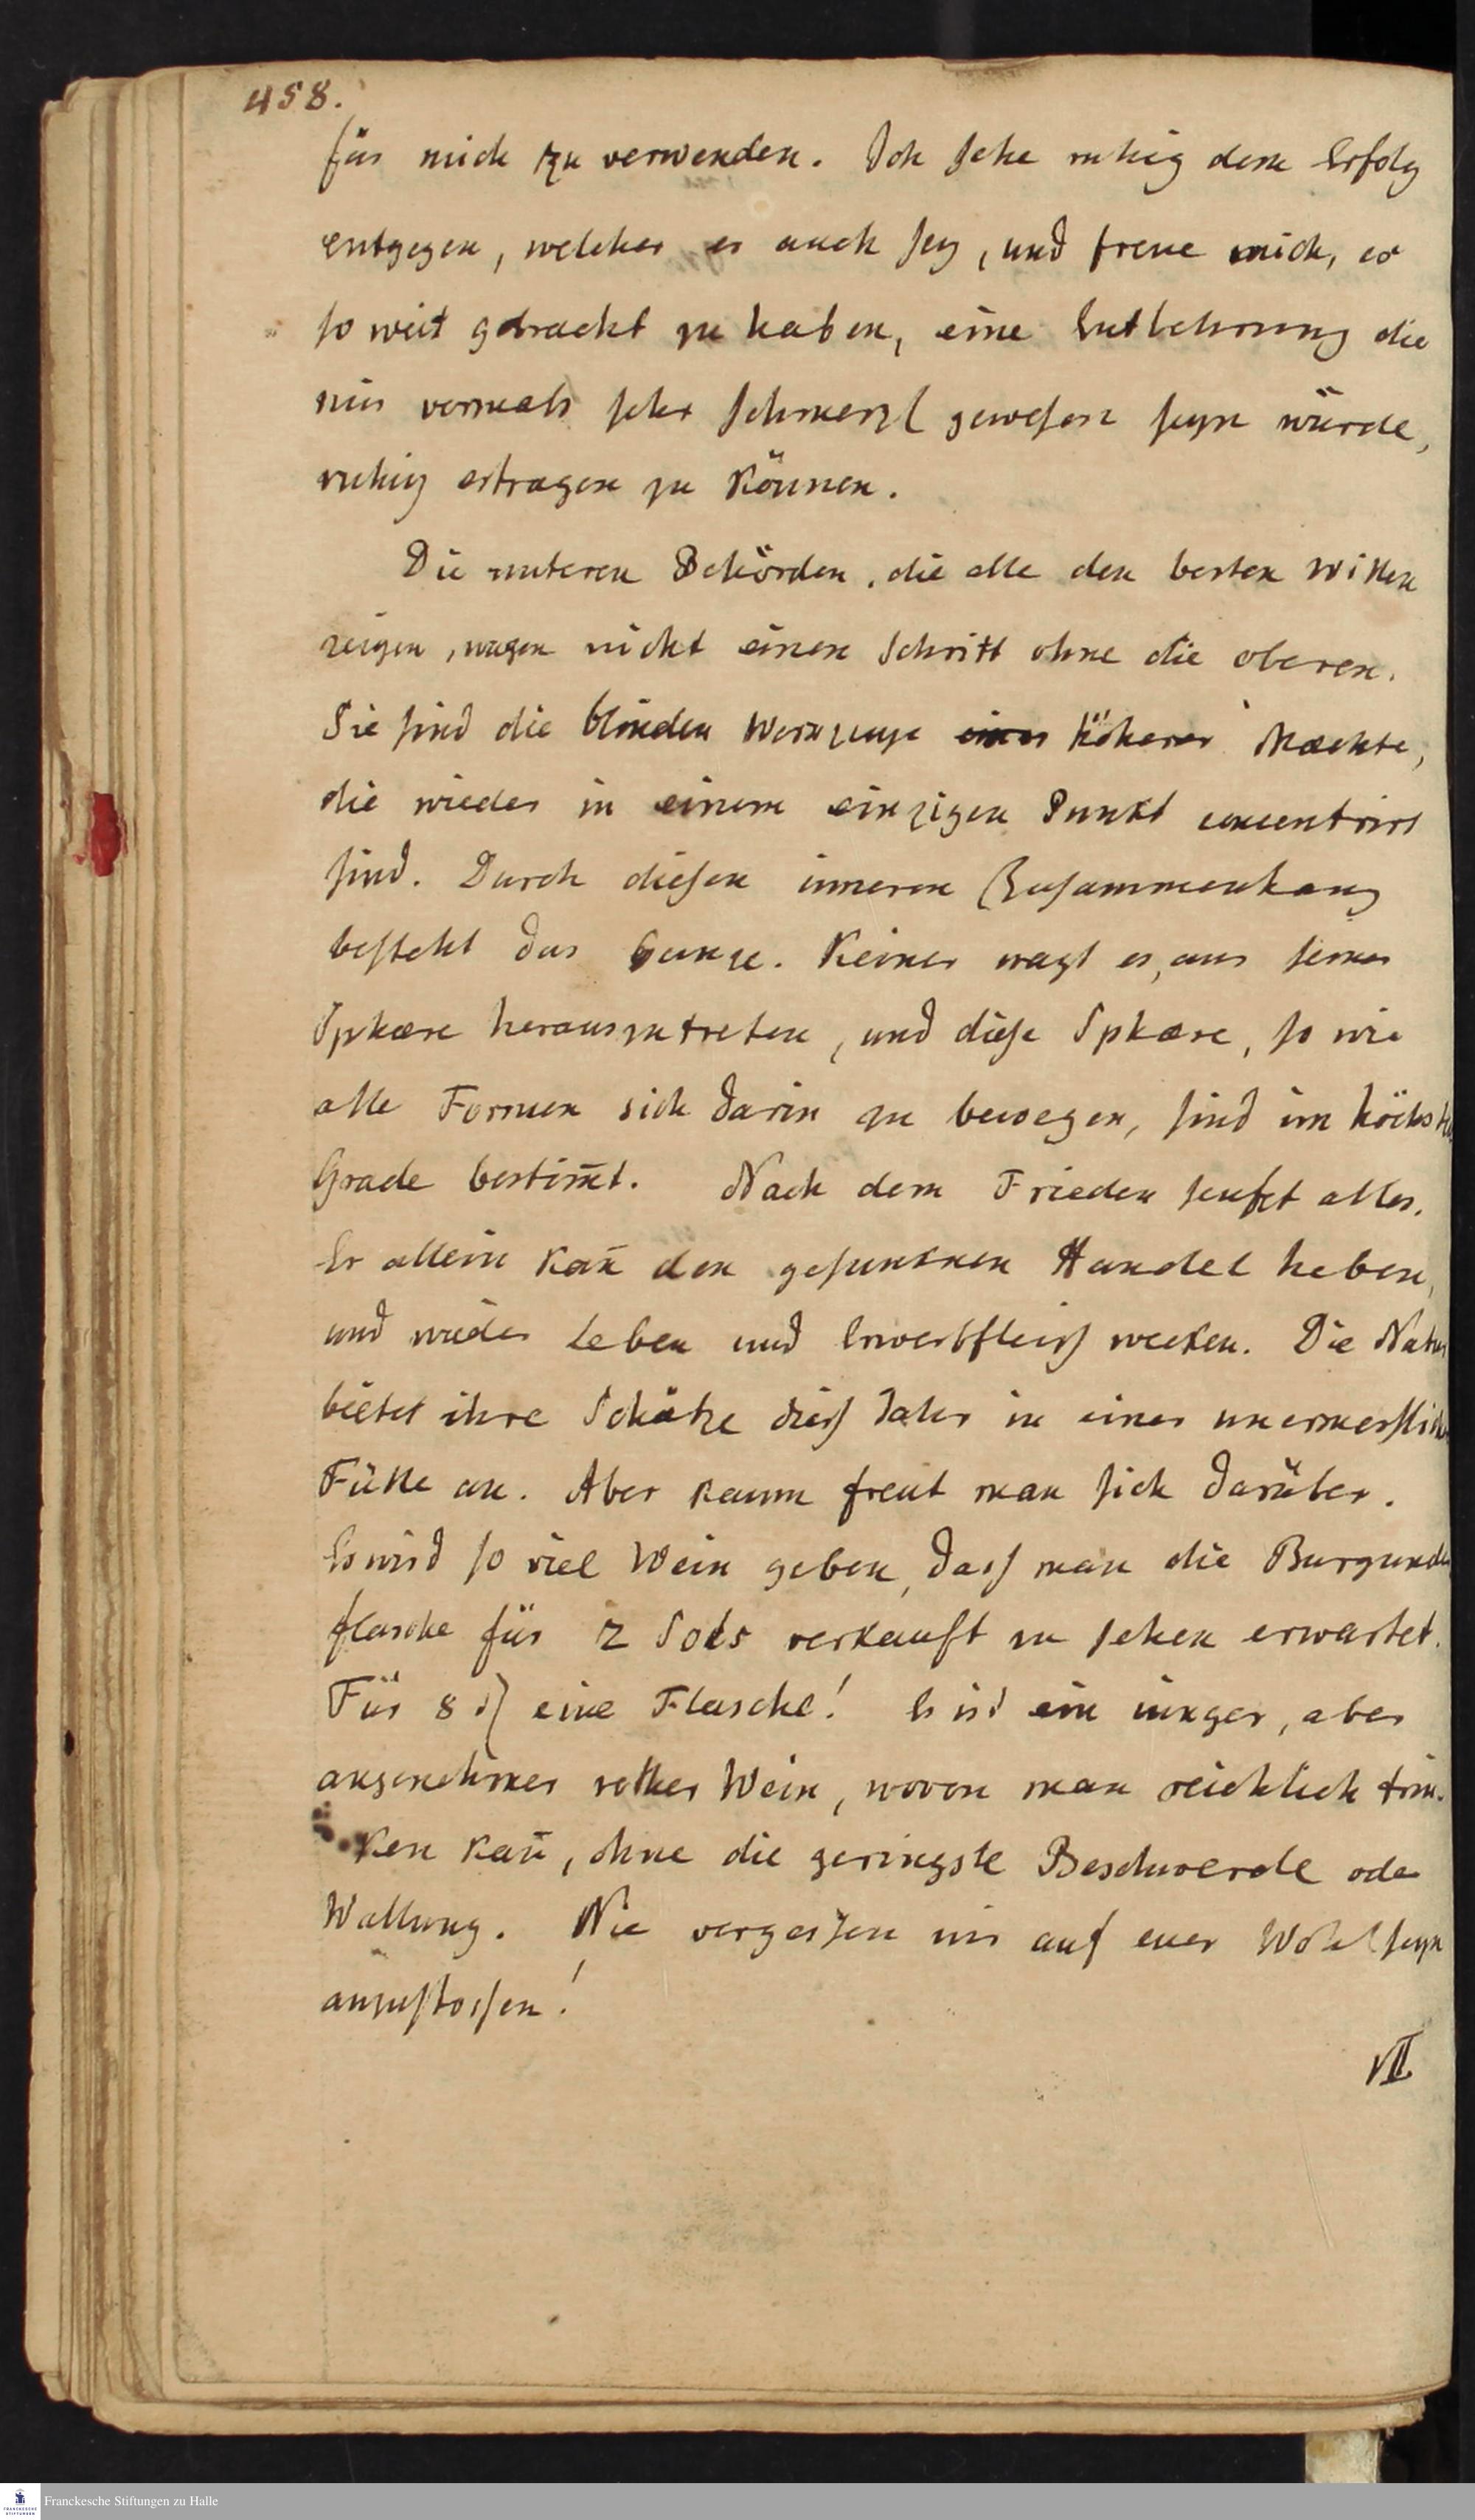 458.
für mich zu verwenden. Ich sehe ruhig dem Erfolg
entgegen, welcher es auch sey, und freue mich, es
so weit gebracht zu haben, eine Entbehrung die
mir vormals sehr schmerzl gewesen seyn würde,
ruhig ertragen zu können.
Die unteren Behörden, die alle den besten Willen
zeigen, wagen nicht einen Schritt ohne die oberen.
Sie sind die blinden Werkzeuge einer höherer Maechte,
die wieder in einem einzigen Punkt concentrirt
sind. Durch diesen inneren Zusammenhang
besteht das Ganze. Keiner wagt es, aus seiner
Sphaere herauszutreten, und diese Sphaere, so wie
alle Formen sich darin zu bewegen, sind im höchsten
Grade bestim̄t. Nach dem Frieden seufzt alles.
Er allein kan̄ den gesunknen Handel heben,
und wieder Leben und Erwerbfleiß wecken. Die Natur
bietet ihre Schätze dieß Jahr in einer unermeßlichen
Fülle an. Aber kaum freut man sich darüber.
Es wird so viel Wein geben, daß man die Burgunder
flasche für 2 Sols verkauft zu sehen erwartet.
Für 8 ₰ eine Flasche! Es ist ein iunger, aber
angenehmer rother Wein, wovon man reichlich trin-
ken kan̄, ohne die geringste Beschwerde oder
Wallung. Nie vergessen wir auf euer Wohlseyn
anzustossen!
VII
Franckesche Stiftungen zu Halle